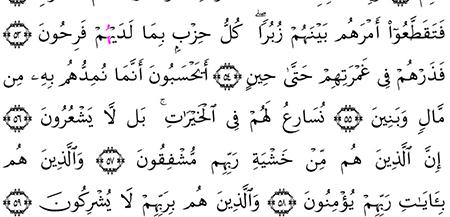 فَتَقَطَّعُوٓا۟ أَمْرَهُم بَيْنَهُمْ زُبُرًۭا ۖ كُلُّ حِزْبٍۭ بِمَا لَدَيْهِمْ فَرِحُونَ ﴿٥٣﴾
فَذَرْهُمْ فِى غَمْرَتِهِمْ حَتَّىٰ حِينٍ ﴿٥٤﴾ أَيَحْسَبُونَ أَنَّمَا نُمِدُّهُم بِهِۦ مِن
مَّالٍۢ وَبَنِينَ ﴿٥٥﴾ نُسَارِعُ لَهُمْ فِى ٱلْخَيْرَٰتِ ۚ بَل لَّا يَشْعُرُونَ ﴿٥٦﴾
إِنَّ ٱلَّذِينَ هُم مِّنْ خَشْيَةِ رَبِّهِم مُّشْفِقُونَ ﴿٥٧﴾ وَٱلَّذِينَ هُم
بِـَٔايَٰتِ رَبِّهِمْ يُؤْمِنُونَ ﴿٥٨﴾ وَٱلَّذِينَ هُم بِرَبِّهِمْ لَا يُشْرِكُونَ ﴿٥٩﴾